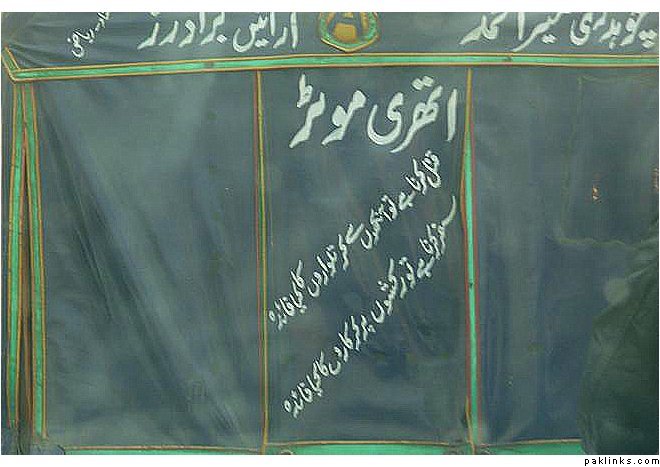 چوہدری احمد ارائیں برادرز
اتھری موٹر
قتل کرنا ہے تو آنکھوں سے کر تلواروں کا کیا فائدہ
سفر کرنا ہے تو رکشوں پر کر کاروں کا کیا فائدہ
paklinks.com